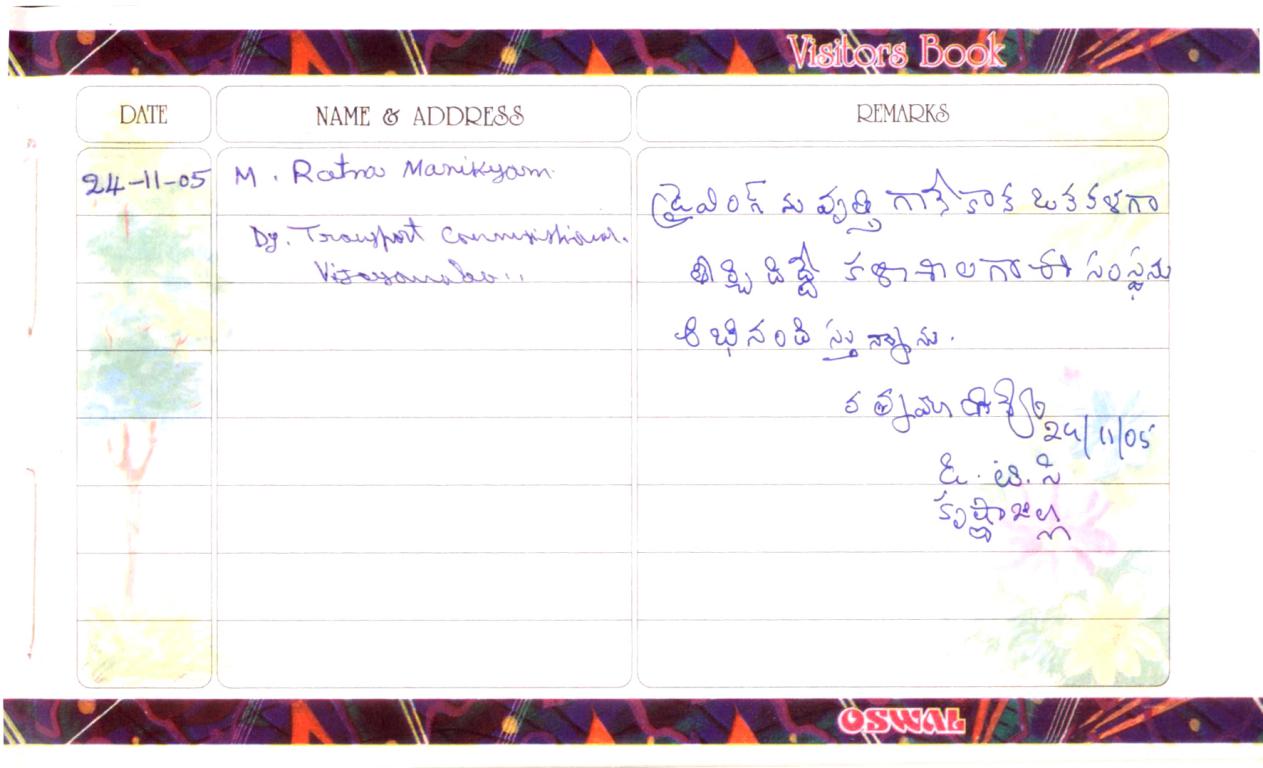 Visitors Book
DATE NAME & ADDRESS REMARKS
24-11-05 M. Ratna Manikyam
Dy. Transport Commissioner.
Vijayawada
డ్రైవింగ్ ను వృత్తి గానే కాక ఒక కళగా
తీర్చి దిద్దే కళాశాల గా ఈ సంస్థను
అభినందిస్తున్నాను.
రత్నమాణిక్యం
24/11/05
డి. టి. సి
కృష్ణాజిల్లా
OSWAL